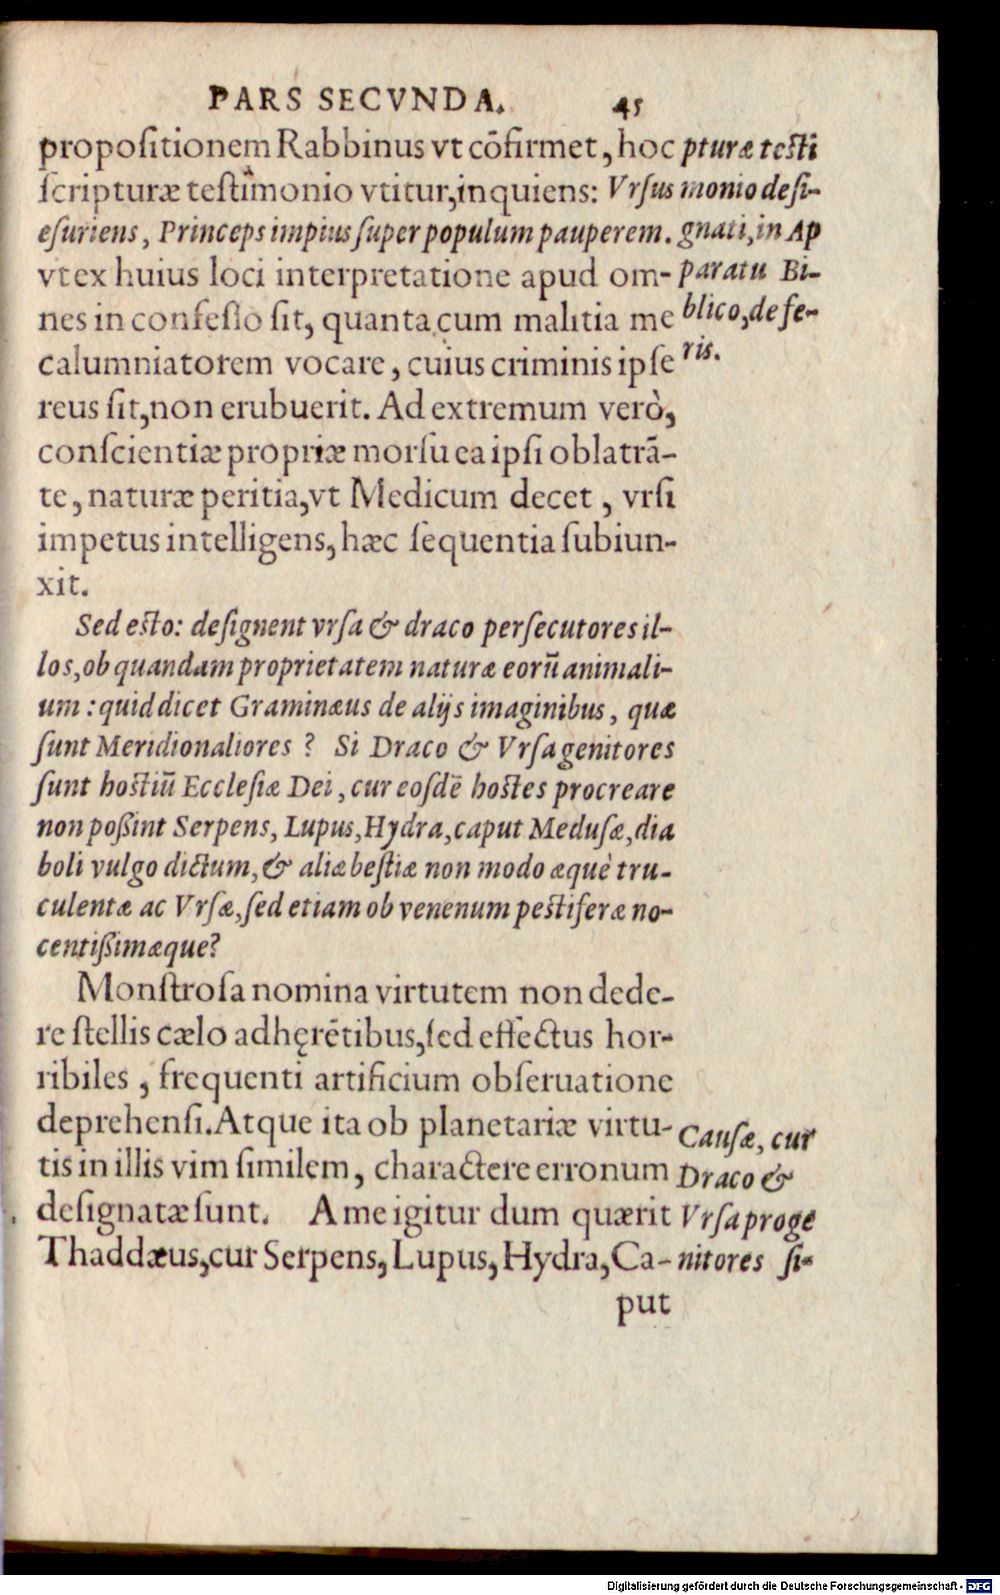 PARS SECVNDA. 45
propoſitionem Rabbinus vt cōfirmet, hoc
ſcripturæ teſtimonio vtitur, inquiens: Vrſus
eſuriens, Princeps impius ſuper populum pauperem.
vt ex huius loci interpretatione apud om-
nes in confeſſo ſit, quanta cum malitia me
calumniatorem vocare, cuius criminis ipſe
reus ſit, non erubuerit. Ad extremum verò,
conſcientiæ propriæ morſu ea ipſi oblatrā-
te, naturæ peritia, vt Medicum decet, vrſi
impetus intelligens, hæc ſequentia ſubiun-
xit.
pturæ teſti
monio deſi-
gnati, in Ap
paratu Bi-
blico, de fe-
ris.
Sed eſto: deſignent vrſa & draco perſecutores il-
los, ob quandam proprietatem naturæ eorū animali-
um: quid dicet Graminæus de alijs imaginibus, quæ
ſunt Meridionaliores? Si Draco & Vrſa genitores
ſunt hoſtiū Eccleſiæ Dei, cur eoſdē hoſtes procreare
non poßint Serpens, Lupus, Hydra, caput Meduſæ, dia
boli vulgo dictum, & aliæ beſtiæ non modo æquè tru-
culentæ ac Vrſæ, ſed etiam ob venenum peſtiferæ no-
centißimæque?
Monſtroſa nomina virtutem non dede-
re ſtellis cælo adhęrētibus, ſed effectus hor-
ribiles, frequenti artificium obſeruatione
deprehenſi. Atque ita ob planetariæ virtu-
tis in illis vim ſimilem, charactere erronum
deſignatæ ſunt. A me igitur dum quærit
Thaddæus, cur Serpens, Lupus, Hydra, Ca-
Cauſæ, cur
Draco &
Vrſa proge
nitores ſi-
put
Digitalisierung gefördert durch die Deutsche Forschungsgemeinschaft - DFG